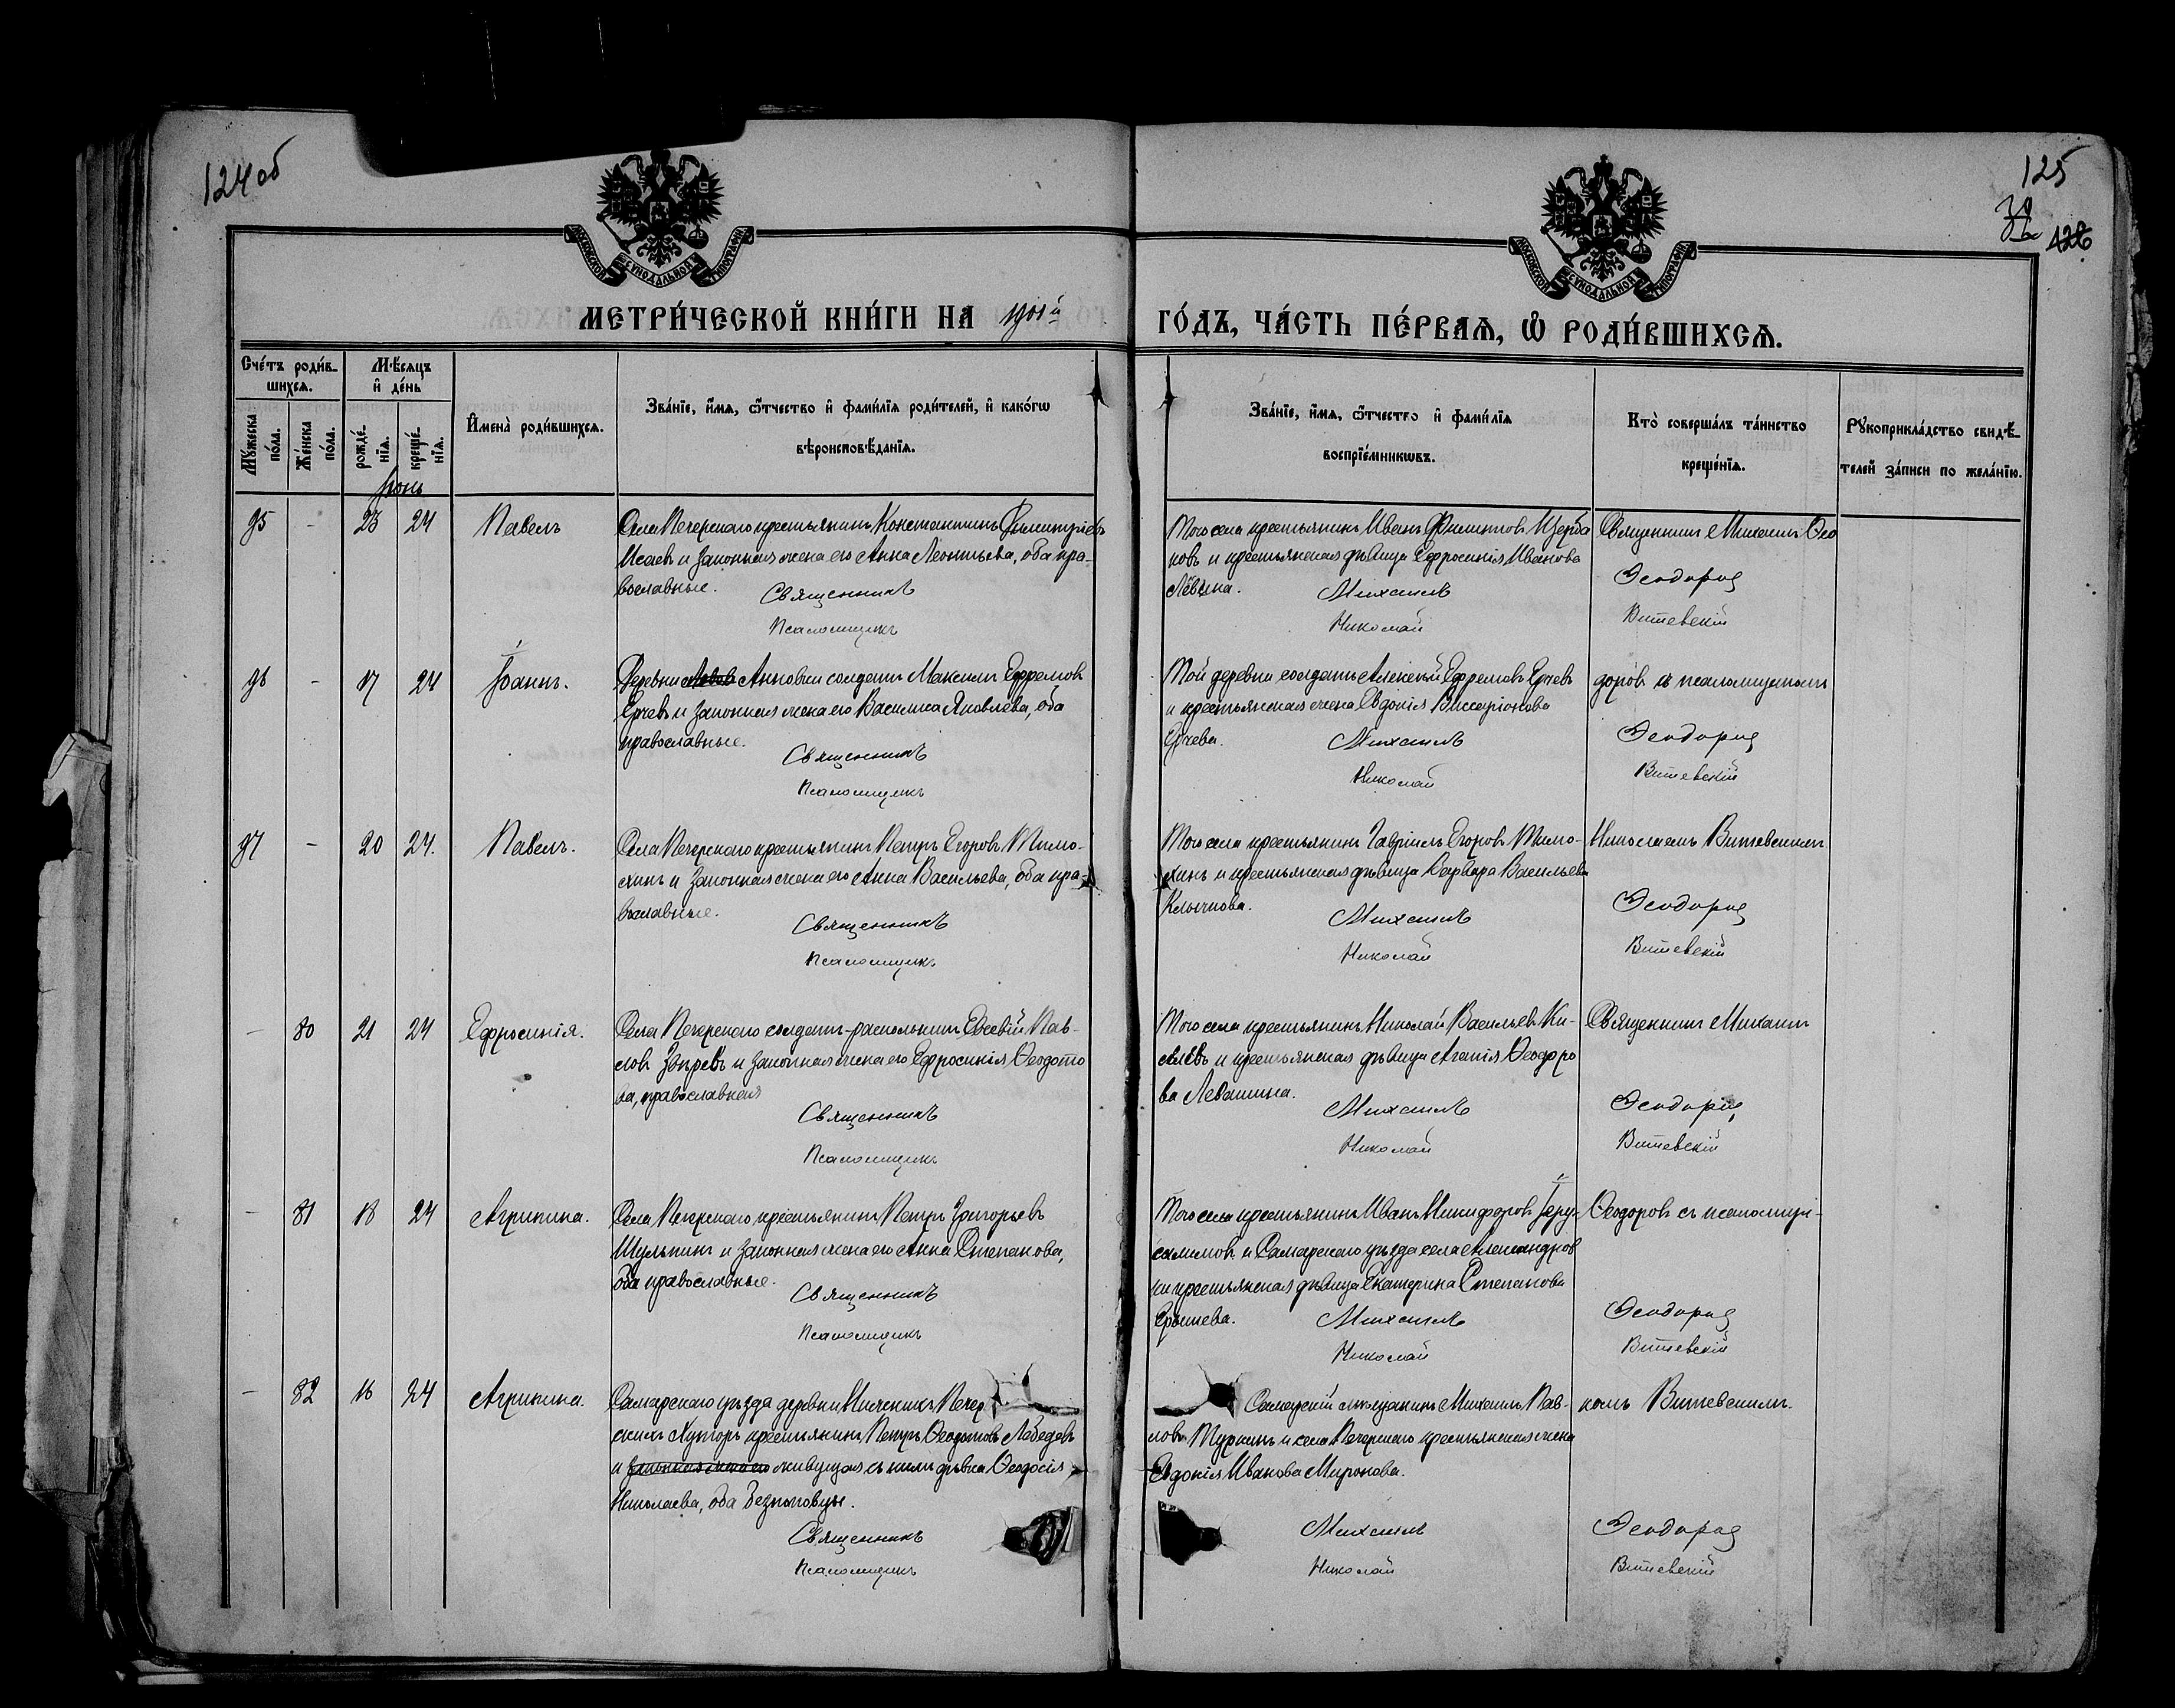 124 об
125
126
МОСКОВСКОЙ СѴНОДАЛЬНОЙ ТИПОГРАФІИ
МОСКОВСКОЙ СѴНОДАЛЬНОЙ ТИПОГРАФІИ
МЕТРИ́ЧЕСКОЙ КНИ́ГИ НА 1901й
ГО́ДЪ, ЧА́СТЬ ПЕ́РВАѦ, Ѡ РОДИ́ВШИХСѦ.
Сче́тъ роди́в-
шихсѧ.
Мꙋ́жеска по́ла.
Же́нска по́ла.
Мѣ́сѧцъ
и҆ де́нь
рожде́-
нїѧ.
креще́-
нїѧ.
И҆мена̀ роди́вшихсѧ.
Зва́нїе, и҆́мѧ, ѻ҆́тчество и҆ фами́лїѧ роди́телей, и҆ како́гѡ
вѣроисповѣ́данїѧ.
Зва́нїе, и҆́мѧ, ѻ҆́тчество и҆ фами́лїѧ
воспрїе́мникѡвъ.
Кто̀ соверша́лъ та́инство
креще́нїѧ.
Рꙋкоприкла́дство свидѣ́-
телей за́писи по жела́нїю.
Іюнь
95 - 23 24 Павелъ
Села Печерскаго крестьянинъ Константинъ Димитріевъ
Исаевъ и законная жена его Анна Леонтьева, оба пра-
вославные.
Священникъ
Псаломщикъ
Того села крестьянинъ Иванъ Филиповъ Щерба
ковъ и крестьянская дѣвица Ефросинія Иванова
Лёвина.
Михаилъ
Николай
Священникъ Михаилъ Ѳео
Ѳеодоровъ
Витевскій
96 - 17 24 Іоаннъ.
Деревни Анновки солдатъ Максимъ Ефремовъ
Ерчевъ и законная жена его Василиса Яковлева, оба
православные.
Священникъ
Псаломщикъ
Той деревни солдатъ Алексѣй Ефремовъ Ерчевъ
и крестьянская жена Евдокія Виссаріонова
Ерчева.
Михаилъ
Николай
доровъ съ псаломщикомъ
Ѳеодоровъ
Витевскій
97 - 20 24. Павелъ.
Села Печерскаго крестьянинъ Петръ Егоровъ Тимо-
хинъ и законная жена его Анна Васильева, оба пра-
вославные.
Священникъ
Псаломщикъ
Того села крестьянинъ Гавріилъ Егоровъ Тимо-
хинъ и крестьянская дѣвица Варвара Васильева
Клычкова.
Михаилъ
Николай
Николаемъ Витевскимъ
Ѳеодоровъ
Витевскій
- 80 21 24 Ефросинія.
Села Печерскаго солдатъ-раскольникъ Евсевій Пав-
ловъ Звѣревъ и законная жена его Ефросинія Ѳеодото
ва, православная
Священникъ
Псаломщикъ
Того села крестьянинъ Николай Васильевъ Ки-
селёвъ и крестьянская дѣвица Агапія Ѳеодоро
ва Левашина.
Михаилъ
Николай
Священникъ Михаилъ
Ѳеодоровъ
Витевскій
- 81 18 24 Агрипина.
Села Печерскаго крестьянинъ Петръ Григорьевъ
Шульпинъ и законная жена его Анна Степанова,
оба православные.
Священникъ
Псаломщикъ
Того села крестьянинъ Иванъ Никифоровъ Іеру-
салимовъ и Самарскаго уѣзда села Александров
ки крестьянская дѣвица Екатерина Степанова
Михаилъ
Николай
Ѳеодоровъ съ псаломщи-
Ѳеодоровъ
Витевскій
- 82 16 24 Агрипина.
Самарскаго уѣзда деревни Печер
скихъ Хуторъ крестьянинъ Петръ Ѳеодотовъ Лебедевъ
и законная жена его живущая съ нимъ дѣвка Ѳеодосія
Николаева, оба безпоповцы.
Священникъ
Псаломщикъ
Самарскій мѣщанинъ Михаилъ Пав-
ловъ Туркинъ и села Печерскаго крестьянская жена
Евдокія Иванова Миронова.
Михаилъ
Николай
комъ Витевскимъ.
Ѳеодоровъ
Витевскій